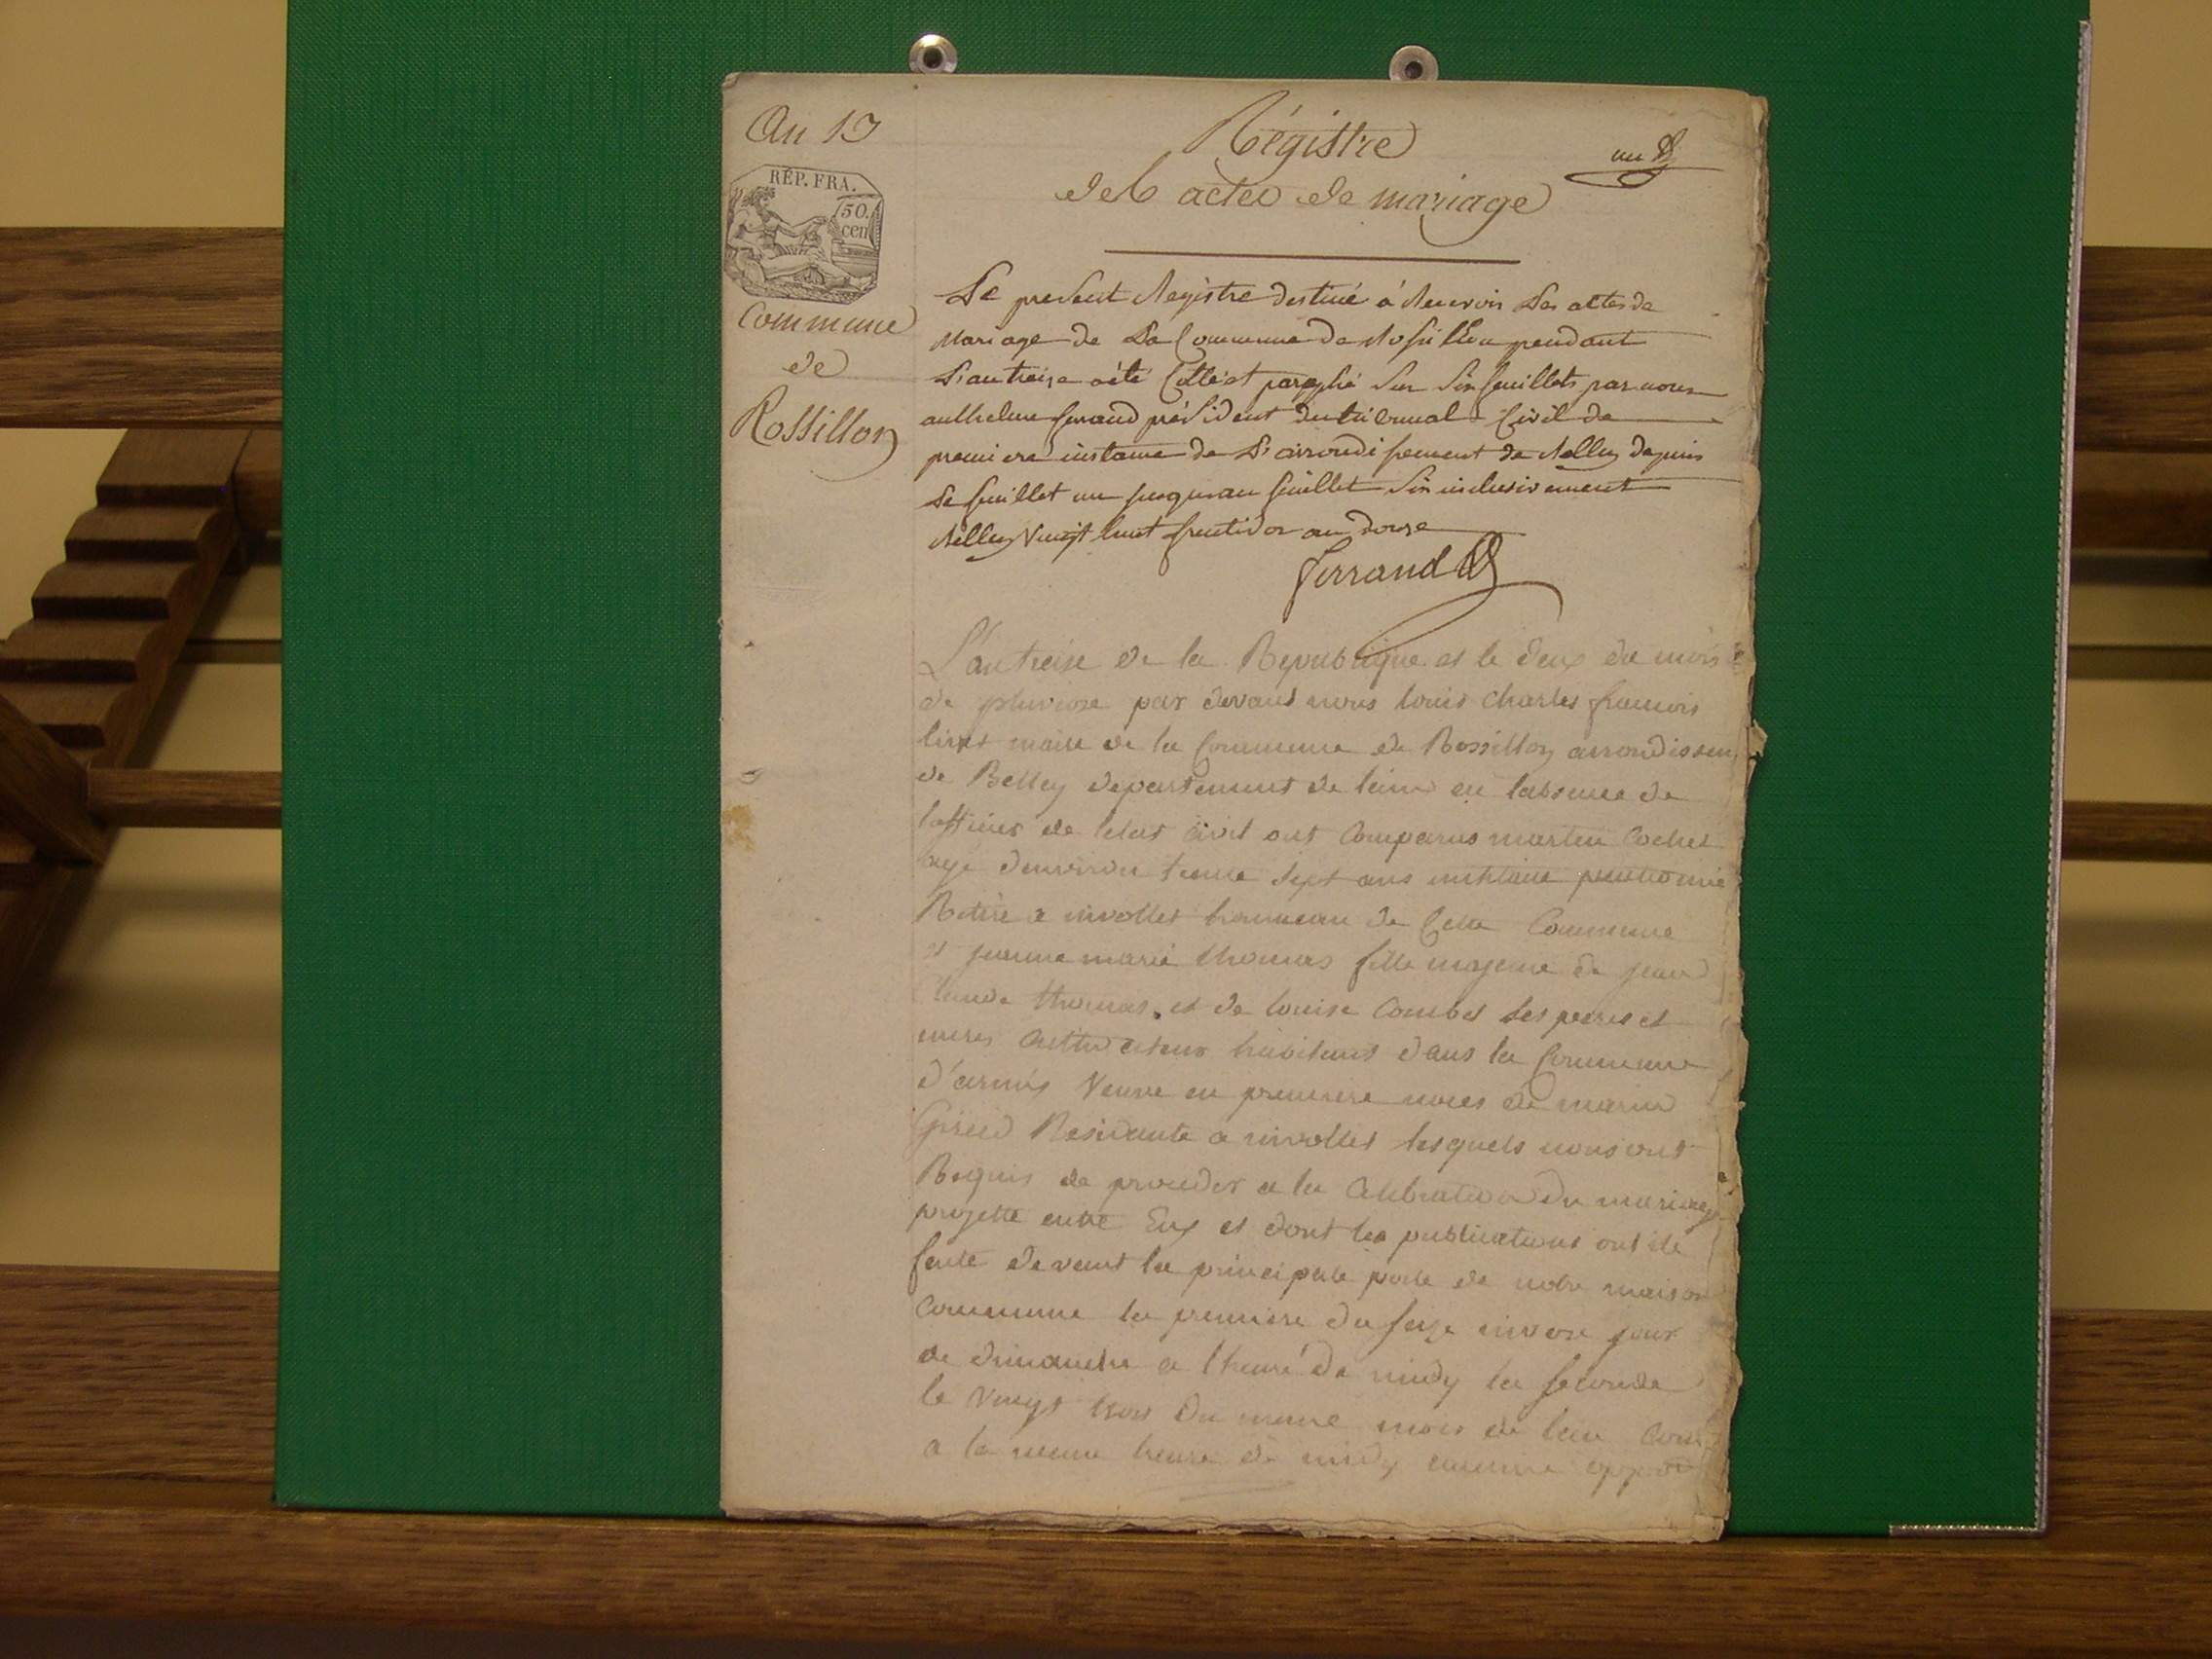 An 13
Régistre
un
des actes de mariage
REP. FRA.
50.
cen
Commune
de
Rossillon
Le present Registre destiné à Recevoir Les actes de
Mariage de La Commune de Rossillon pendant
L'an treize a été Cotté et paraphé Sur Six feuillets par nous
anthelme ferrand président du tribunal Civil de
premiere instance de L'arrondissement de Belley depuis
Le feuillet un jusqu'au feuillet Six inclusivement
Belley Vingt huit fructidor an douze
ferrand
L'an treise de la Republique et le deux du mois
de pluviose par devant nous louis Charles francois
maire de la Commune de Rossillon arrondissem
de Belley departement de lain en labsence de
lofficier de letat civil ont Comparus martin Cochet
agé denviron trente sept ans militaire pensionné
Retiré a hameau de Cette Commune
et jeanne marie thomas fille majeure de jean
Claude thomas et de louise Combet ses pere et
mere Cultivateurs habitans dans la Commune
d'armis Veuve en premiere noces de marin
Residante a lesquels nous ont
Requis de proceder a la Celebration du mariage
projetté entre Eux et dont les publications ont été
faite devant la principale porte de notre maison
Commune la premiere du seize nivose jour
de dimanche a lheure de midy la seconde
le Vingt trois du meme mois de lan
a la meme heure de midy aucune